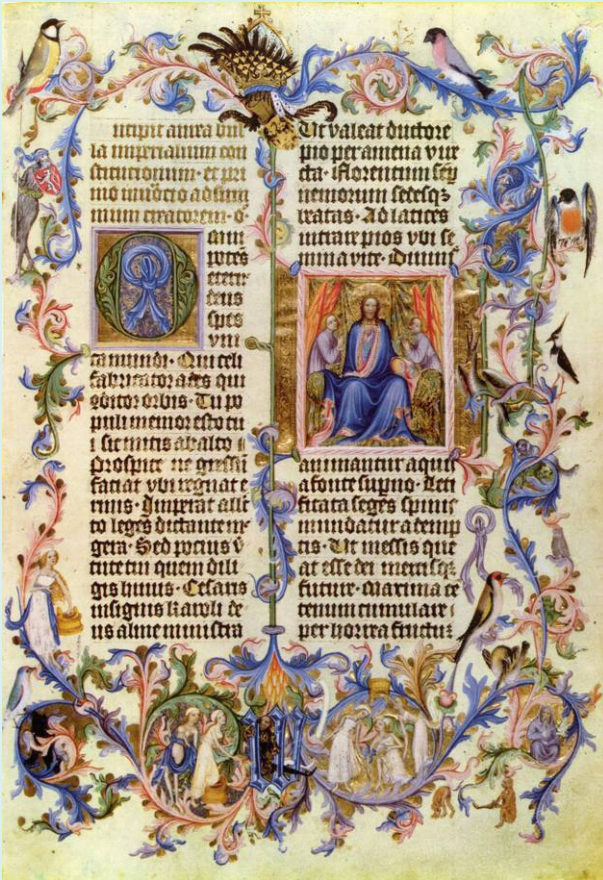 ncipit aurea bul
la imperialium con
stitucionum · et pri
mo inuocio ad sum
mum creatorem · o
mni
potēs
eterne
deus
spes
vni
ca mundi · Qui celi
fabricator ades qui
ditor orbis · Tu po
puli memor esto tu
i sic mitis ab alto
Prospice ne gressū
faciat vbi regnat e
rinis · Imperat alle
to leges dictante me
gera · Sed pocius v
tute tui quem dili
gis huius · Cesaris
insignis karoli de
us alme ministra
Ut valeat ductore
pio per amena vire
cta · Florentum sep
nemorum sedesq
beatas · Ad latices
intrare pios vbi se
mina vite · Diuini
animantur aquis
a fonte supno · Leti
ficata seges spinis
mundatur ademp
tis · Ut messis que
at esse dei mercisq
future · Maxima ce
tenum cumulare
per horrea fructus